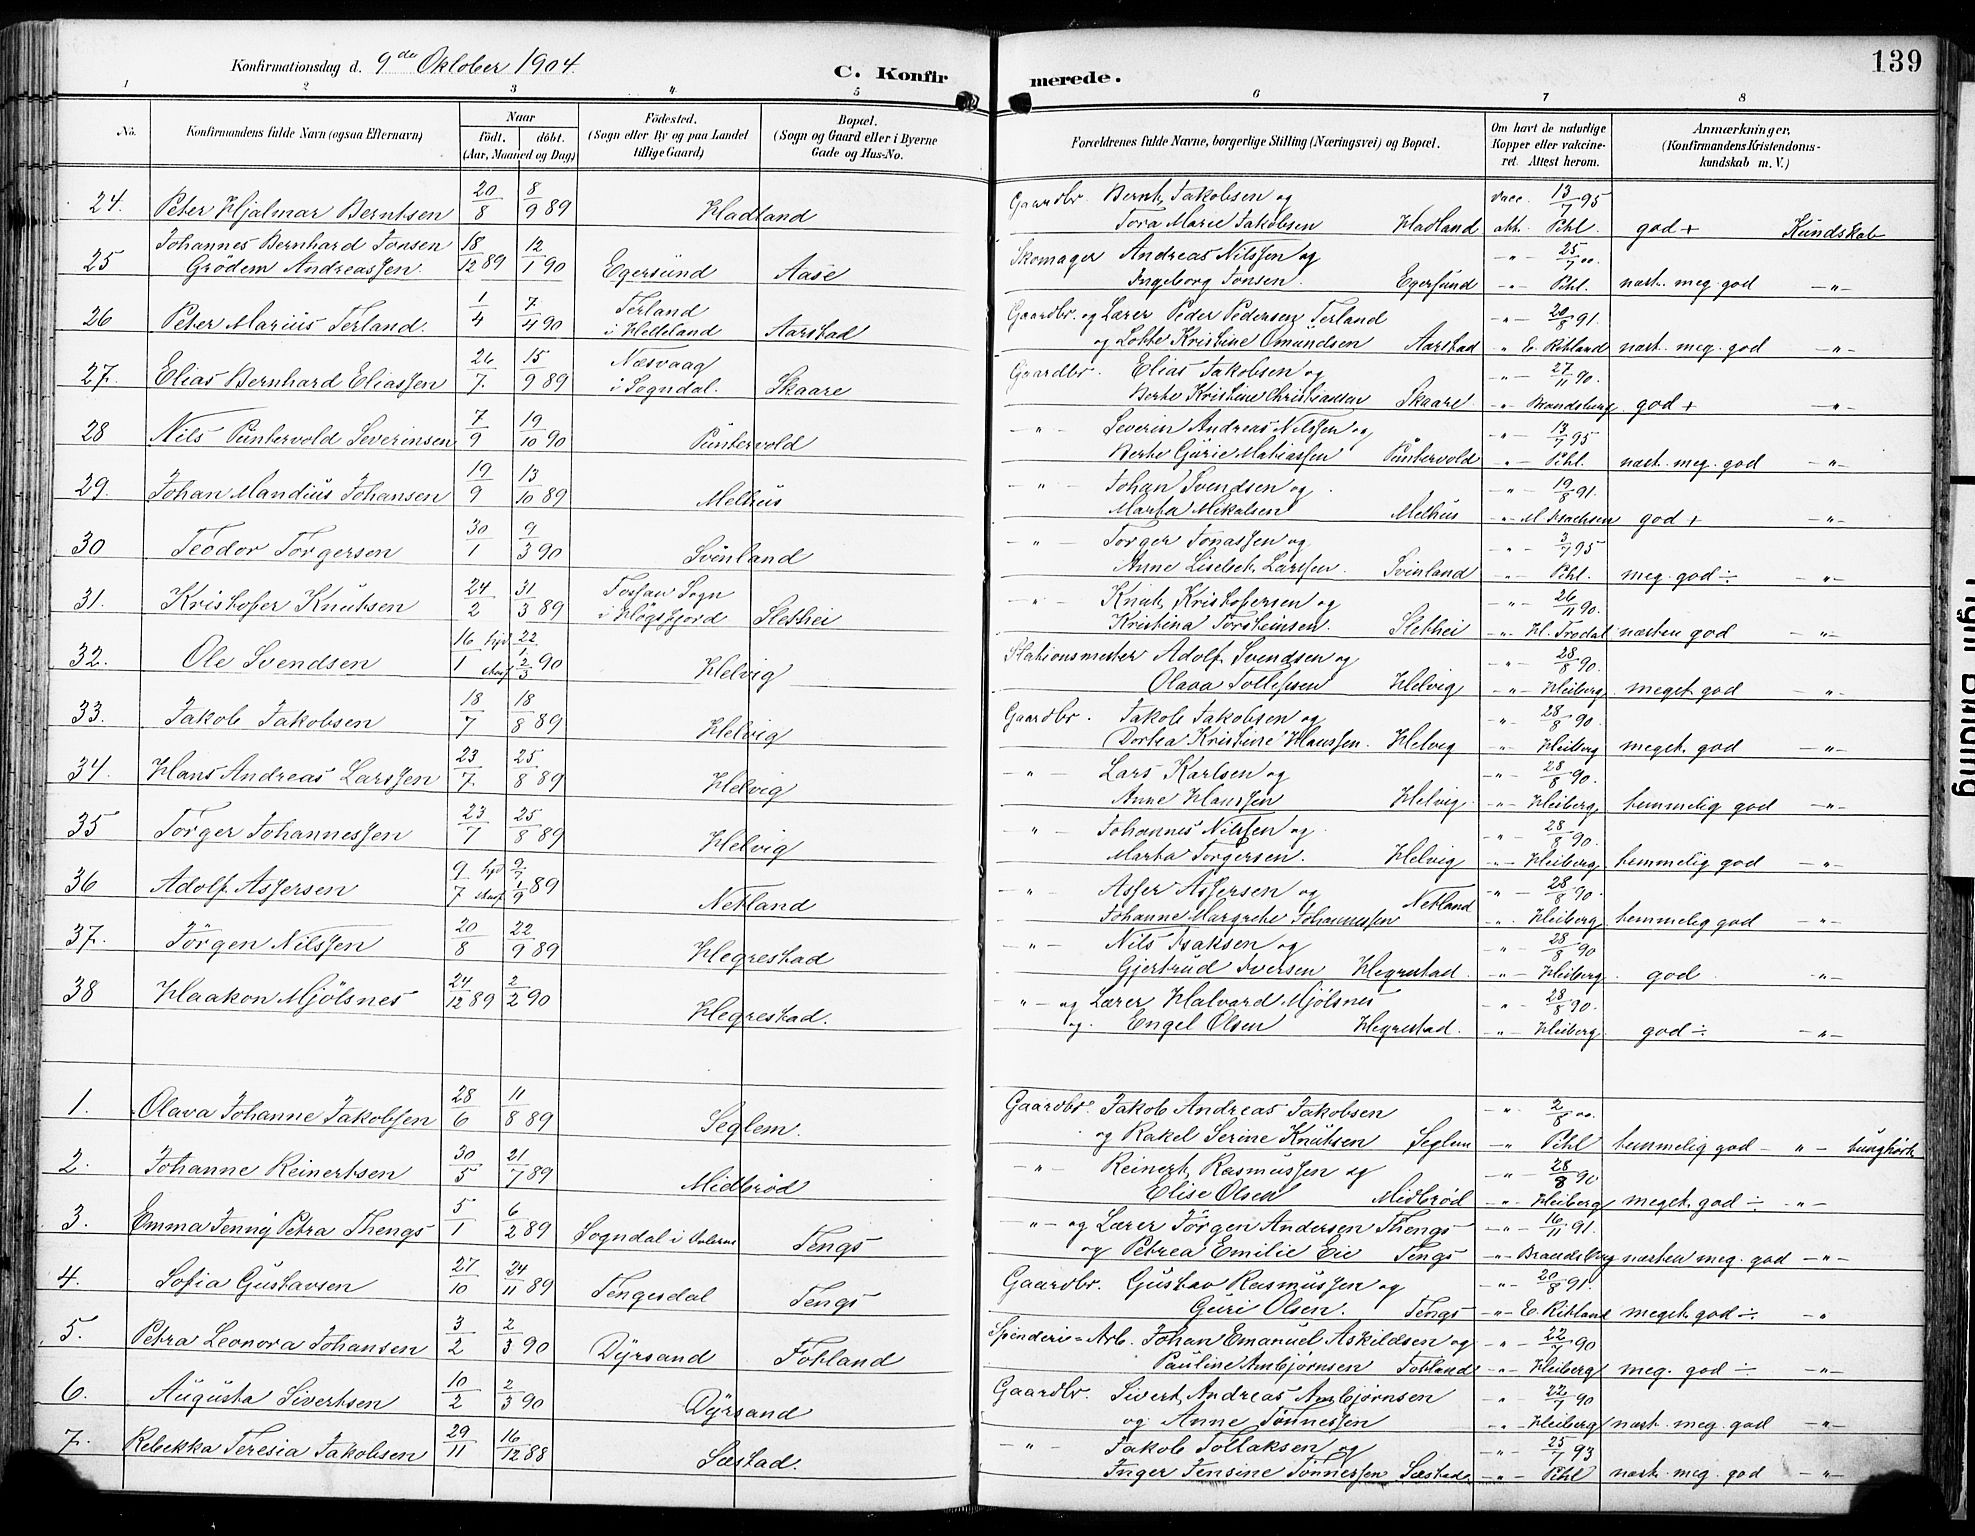 Konfirmationsdag d. 9de Oktober 1904.
C. Konfirmerede.
139
1 2 3 4 5 6 7 8
No.
Konfirmandens fulde Navn (ogsaa Efternavn)
Naar
födt. döbt.
(Aar, Maaned og Dag)
Födested.
(Sogn eller By og paa Landet
tillige Gaard)
Bopæl.
(Sogn og Gaard eller i Byerne
Gade og Hus-No.
Forældrenes fulde Navne, borgerlige Stilling (Næringsvei) og Bopæl.
Om havt de naturlige
Kopper eller vakcine-
ret. Attest herom.
Anmærkninger,
(Konfirmandens Kristendoms-
kundskab m. V.)
24. Peter Hjalmar Berntsen 20/8 8/9 89 Hadland Gaardbr. Bernt Jakobsen og vacc. 13/7 95
Tora Marie Jakobsen Hadland att. Pihl. god + Kundskab
25 Johannes Bernhard Jonsen 18/12 89 12/1 90 Skomager Andreas Nilssen og -"- 25/7 00.
Grödem Andreassen. Egersund Aase Ingeborg Jonsen. Egersund -"- Pihl. næst. meg. god -"-
26 Peter Marius Terland. 1/4 7/4 90 Terland Gaardbr. og Lærer Peder Pedersen Terland -"- 20/8 91.
i Helleland Aarstad og Lotte Kristine Omundsen Aarstad " E. Ritland næst. meg. god -"-
27. Elias Bernhard Eliassen 26/7. 15/9 89 Næsvaag Gaardbr. Elias Jakobsen og -"- 27/11 90.
i Sogndal. Skaare Berte Kristine Christiansen Skaare. -"- Brandsberg god + -"-
28 Nils Puntervold Severinsen 7/9 19/10 90 Puntervold -"- Severin Andreas Nilssen og -"- 13/7 95
Berte Gurie Matiassen Puntervold -"- Pihl. næst. meg. god -"-
29. Johan Mandius Johansen 19/9 13/10 89 Melhus -"- Johan Svendsen og -"- 19/8 91.
Marta Mikalsen Melhus -"- M. Isachsen god + -"-
30 Teodor Torgersen 30/1 9/3 90 Svinland -"- Torger Jonassen og -"- 3/7 95
Anne Lisebet Larssen. Svinland -"- Pihl. meg. god ÷ -"-
31. Kristofer Knutsen 24/2 31/3 89 Fossan Sogn -"- Knut Kristofersen og -"- 26/11 90.
i Högsfjord Slethei Kristina Torsteinsen. Slethei -"- H. Tredal næsten god -"-
32. Ole Svendsen 16/1 hjd 22/1 2/3 90 Helvig Stationsmester Adolf Svendsen og -"- 28/8 90.
Olava Tollefsen Helvig -"- Heiberg meget god -"-
33. Jakob Jakobsen 18/7 18/8 89 Helvig Gaardbr. Jakob Jakobsen og -"- 28/8 90.
Dortea Kristine Hanssen. Helvig -"- Heiberg meget god -"-
34. Hans Andreas Larssen 23/7. 25/8 89 Helvig -"- Lars Karlsen og -"- 28/8 90.
Anne Hanssen Helvig. -"- Heiberg temmelig god -"-
35 Torger Johannessen 23/7 25/8 89 Helvig -"- Johannes Nilssen og -"- 28/8 90.
Marta Torgersen. Helvig -"- Heiberg temmelig god -"-
36 Adolf Assersen 9/7 hjd 9/7 1/9 89 Netland -"- Asser Assersen og Netland -"- 28/8 90.
Johanne Margrethe Johannessen -"- Heiberg temmelig god -"-
37. Jörgen Nilssen 20/8 22/9 89 Hegrestad -"- Nils Isaksen og -"- 28/8 90
Gjertrud Iversen Hegrestad. -"- Heiberg. god -"-
38 Haakon Mjölsnes 24/12 89 2/2 90 Hegrestad. -"- og Lærer Halvard Mjölsnes -"- 28/8 90.
og. Engel Olsen Hegrestad. -"- Heiberg god ÷ -"-
1. Olava Johanne Jakobsen 28/6 11/8 89 Seglem. Gaardbr. Jakob Andreas Jakobsen -"- 2/8 00.
og Rakel Serine Knutsen Seglem -"- Pihl temmelig god -"- tunghört
2. Johanne Reinertsen 30/5 21/7 89 Midbröd -"- Reinert Rasmussen og -"- 28/8 90
Elise Olsen Midbröd -"- Heiberg meget god ÷ -"-
3. Emma Jenny Petra Thengs 5/1 6/2 89 Sogndal i Dalerne Tengs -"- og Lærer Jörgen Andersen Thengs -"- 16/11 91.
og Petrea Emilie Eie Tengs -"- Brandsberg næsten meg. god -"-
4. Sofia Gustavsen 27/10 24/11 89 Tengesdal Tengs Gaardbr. Gustav Rasmussen og -"- 20/8 91.
Guri Olsen. Tengs -"- E. Ritland meget god ÷ -"
5. Petra Leonora Johansen 3/2 2/3 90 Dyrsand Fotland Spinderi-Arb. Johan Emanuel Askildsen og -"- 22/7 90
Pauline Ambjörnsen Fotland -"- Heiberg meg. god ÷ -"-
6. Augusta Sivertsen 10/2 2/3 90 Dyrsand Gaardbr. Sivert Andreas Ambjörnsen -"- 22/7 90
og Anne Tönnessen -"- Heiberg næst. meg. god -"-
7. Rebekka Teresia Jakobsen 29/11 16/12 88 Sæstad. -"- Jakob Tollaksen og -"- 25/7 93
Inger Jensine Tönnessen Sæstad -"- Pihl næst. meg. god -"-